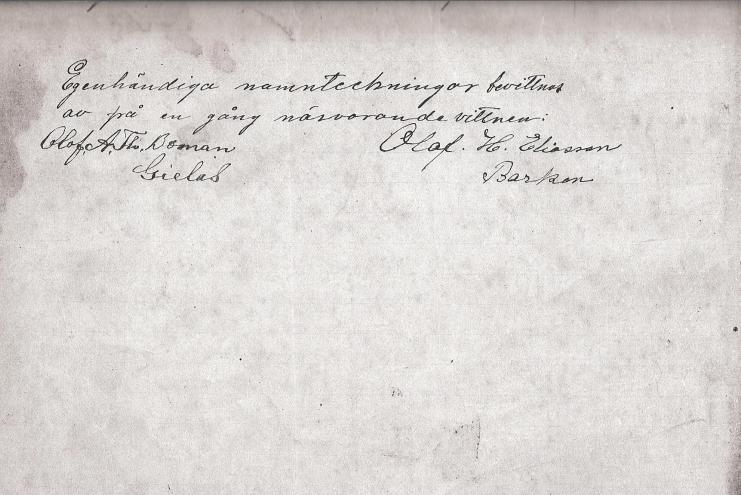 Egenhändiga namnteckningar bevittnas
av på en gång närvarande vittnen:
Olof A. Th. Boman Olof. H. Eliasson
Gielas Barkon